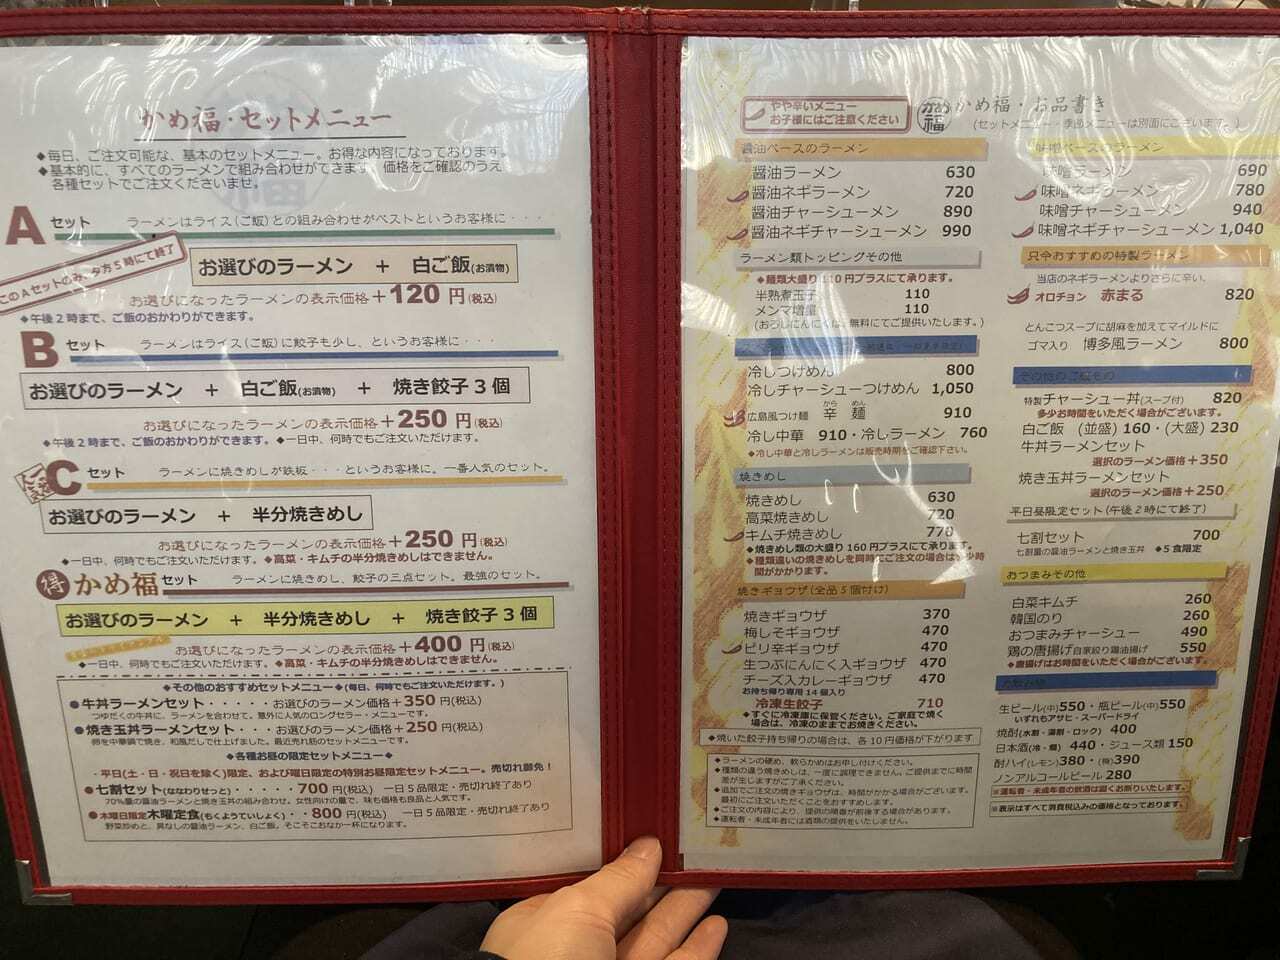 かめ福・セットメニュー
◆毎日、ご注文可能な、基本のセットメニュー。お得な内容になっております。
◆基本的に、すべてのラーメンで組み合わせができます。価格をご確認のうえ
各種セットでご注文くださいませ。
Aセット ラーメンはライス(ご飯)との組み合わせがベストというお客様に・・・
このAセットのみ、夕方5時にて終了
お選びのラーメン + 白ご飯(お漬物)
お選びになったラーメンの表示価格+120円(税込)
◆午後2時まで、ご飯のおかわりができます。
Bセット ラーメンはライス(ご飯)に餃子も少し、というお客様に・・・
お選びのラーメン + 白ご飯(お漬物) + 焼き餃子3個
お選びになったラーメンの表示価格+250円(税込)
◆午後2時まで、ご飯のおかわりができます。 ◆一日中、何時でもご注文いただけます。
Cセット ラーメンに焼きめしが鉄板・・・というお客様に。一番人気のセット。
お選びのラーメン + 半分焼きめし
お選びになったラーメンの表示価格+250円(税込)
◆一日中、何時でもご注文いただけます。 ◆高菜・キムチの半分焼きめしはできません。
得 かめ福セット ラーメンに焼きめし、餃子の三点セット。最強のセット。
お選びのラーメン + 半分焼きめし + 焼き餃子3個
お選びになったラーメンの表示価格+400円(税込)
◆一日中、何時でもご注文いただけます。 ◆高菜・キムチの半分焼きめしはできません。
◆その他のおすすめセットメニュー◆(毎日、何時でもご注文いただけます。)
●牛丼ラーメンセット・・・・・お選びのラーメン価格+350円(税込)
つゆだくの牛丼に、ラーメンを合わせて。意外に人気のロングセラー・メニューです。
●焼き玉丼ラーメンセット・・・お選びのラーメン価格+250円(税込)
卵を中華鍋で焼き、和風だしで仕上げました。最近売れ筋のセットメニューです。
◆各種お昼の限定セットメニュー◆
・平日(土・日・祝日を除く)限定、および曜日限定の特別お昼限定セットメニュー。売切れ御免!
●七割セット(ななわりせっと)・・・・700円(税込) 一日5品限定・売切れ終了あり
70%量の醤油ラーメンと焼き玉丼の組み合わせ。女性向けの量で、味も価格も良品と人気です。
●木曜日限定木曜定食(もくようていしょく)・・800円(税込) 一日5品限定・売切れ終了あり
野菜炒めと、具なしの醤油ラーメン、白ご飯。そこそこおなか一杯になります。
やや辛いメニュー
お子様にはご注意ください
かめ福
かめ福・お品書き
(セットメニュー・季節メニューは別面にございます。)
醤油ベースのラーメン
醤油ラーメン 630
醤油ネギラーメン 720
醤油チャーシューメン 890
醤油ネギチャーシューメン 990
ラーメン類トッピングその他
◆麺類大盛り110円プラスにて承ります。
半熟煮玉子 110
メンマ増量 110
(おろしにんにくは、無料にてご提供いたします。)
冷しつけめん 800
冷しチャーシューつけめん 1,050
広島風つけ麺 辛麺 910
から めん
冷し中華 910・冷しラーメン 760
◆冷し中華と冷しラーメンは販売時期をご確認下さい。
焼きめし
焼きめし 630
高菜焼きめし 720
キムチ焼きめし 770
◆焼きめし類の大盛り160円プラスにて承ります。
◆種類違いの焼きめしを同時でご注文の場合は少少時
間がかかります。
焼きギョウザ(全品5個付け)
焼きギョウザ 370
梅しそギョウザ 470
ピリ辛ギョウザ 470
生つぶにんにく入ギョウザ 470
チーズ入カレーギョウザ 470
お持ち帰り専用14個入り
冷凍生餃子 710
◆すぐに冷凍庫に保管ください。ご家庭で焼く
場合は、冷凍のままでお焼きください。
◆焼いた餃子持ち帰りの場合は、各10円価格が下がります
◆ラーメンの硬め、軟らかめはお申し付けください。
◆種類の違う焼きめしは、一度に調理できません。ご提供までに時間
差が生じますがご了承ください。
◆追加でご注文の焼きギョウザは、時間がかかる場合がございます。
最初にご注文いただくことをおすすめします。
◆ご注文の内容により、提供の順番が前後する場合があります。
◆運転者・未成年者には酒類の提供をいたしません。
味噌ベースのラーメン
味噌ラーメン 690
味噌ネギラーメン 780
味噌チャーシューメン 940
味噌ネギチャーシューメン 1,040
只今おすすめの特製ラーメン
当店のネギラーメンよりさらに辛い、
オロチョン 赤まる 820
とんこつスープに胡麻を加えてマイルドに
ゴマ入り 博多風ラーメン 800
その他のご飯もの
特製チャーシュー丼(スープ付) 820
多少お時間をいただく場合がございます。
白ご飯 (並盛)160・(大盛)230
牛丼ラーメンセット
選択のラーメン価格+350
焼き玉丼ラーメンセット
選択のラーメン価格+250
平日昼限定セット(午後2時にて終了)
七割セット 700
七割量の醤油ラーメンと焼き玉丼 ◆5食限定
おつまみその他
白菜キムチ 260
韓国のり 260
おつまみチャーシュー 490
鶏の唐揚げ自家絞り鶏油揚げ 550
◆唐揚げはお時間をいただく場合がございます。
お飲み物
生ビール(中)550・瓶ビール(中)550
いずれもアサヒ・スーパードライ
焼酎(水割・湯割・ロック) 400
日本酒(冷・燗) 440・ジュース類150
酎ハイ(レモン)380・(梅)390
ノンアルコールビール 280
※運転者・未成年者の飲酒は固くお断りいたします。
※表示はすべて消費税込みの価格となっております。